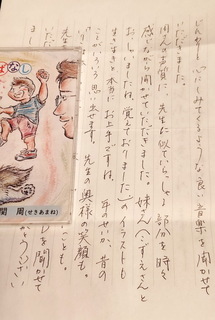 どれも心にしみてくるような良い音楽を聞かせて
いただきました。
周さんの声質に、先生に似ていらっしゃる部分を時々
感じながら聞かせていただきました。妹さん(こずえさんと
おっしゃいましたね。覚えております)のイラストも
生き生きと本当にお上手ですね。年のせいか、昔の
ことがいろいろ思い出せます。先生の奥様の笑顔も。
先生の
ことも。
まし
を聞かせて
うござい
ばなし
関 周(せきあまね)